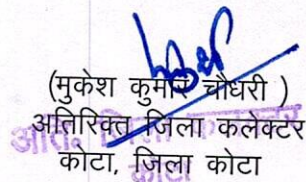 (मुकेश कुमार चौधरी )
अतिरिक्त जिला कलेक्टर
कोटा, जिला कोटा